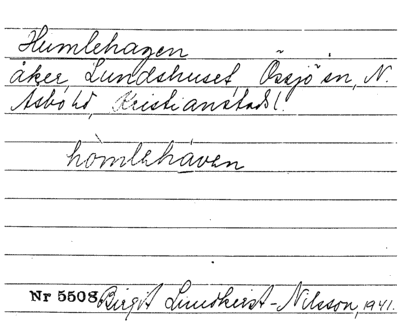 Humlehagen
åker, Lundshuset, Össjö sn, N.
Åsbo hd, Kristianstads l.
hòmlehàven
Nr 5508 Birgit Lundkvist-Nilsson, 1941.